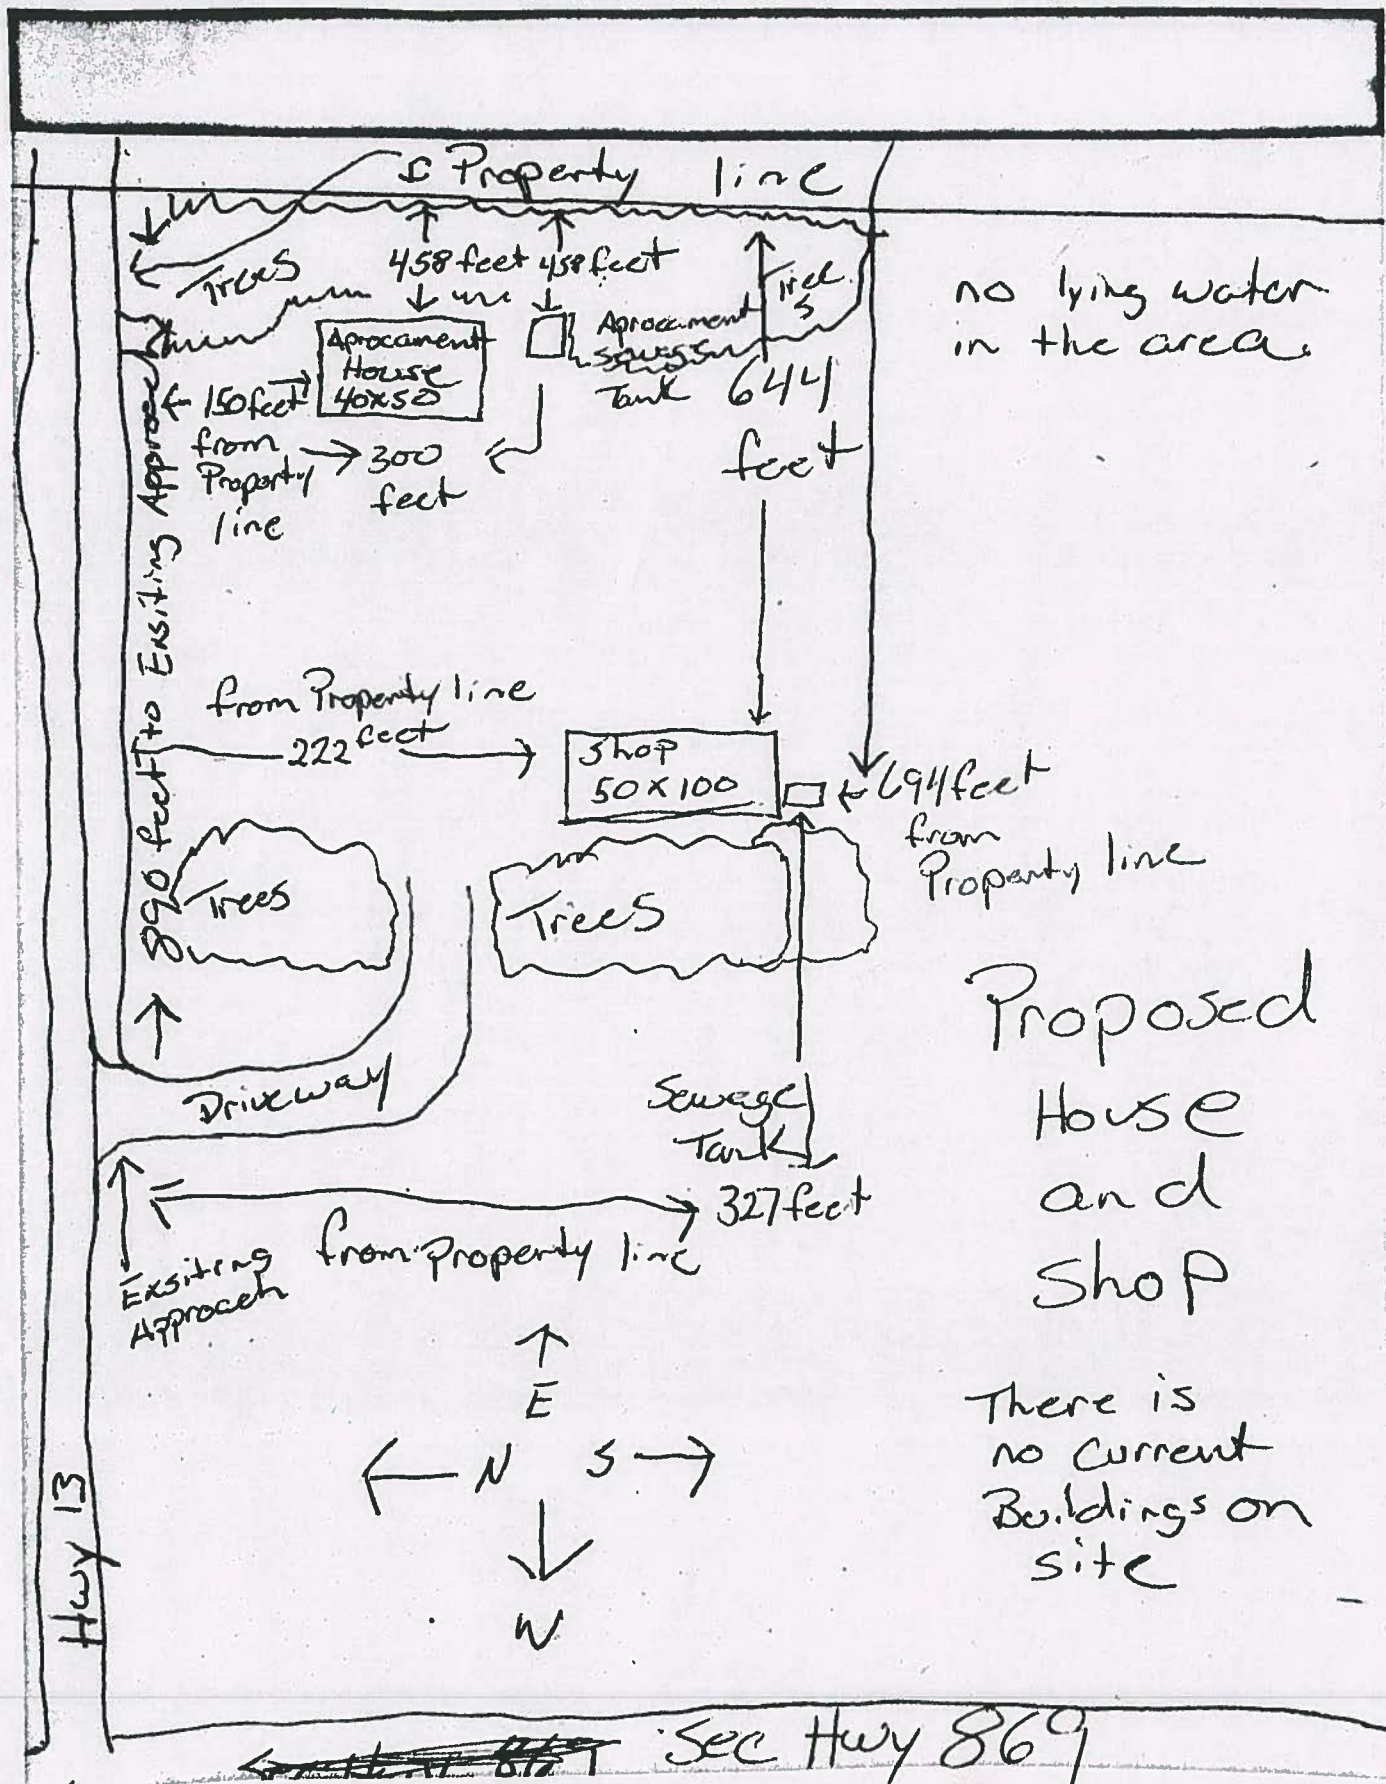 Property line
Trees
458 feet
458 feet
Trees
no lying water
in the area.
Aprocament
House
40x50
Aprocament
sewage
Tank
644
feet
150 feet
from
Property
line
300
feet
890 feet to Exsiting Approach
from Property line
222 feet
Shop
50 x 100
694 feet
from
Property line
Trees
Trees
Proposed
House
and
Shop
Driveway
Sewage
Tank
327 feet
from Property line
Exsiting
Approach
E
N S
W
There is
no current
Buildings on
site
Hwy 13
Sec Hwy 869